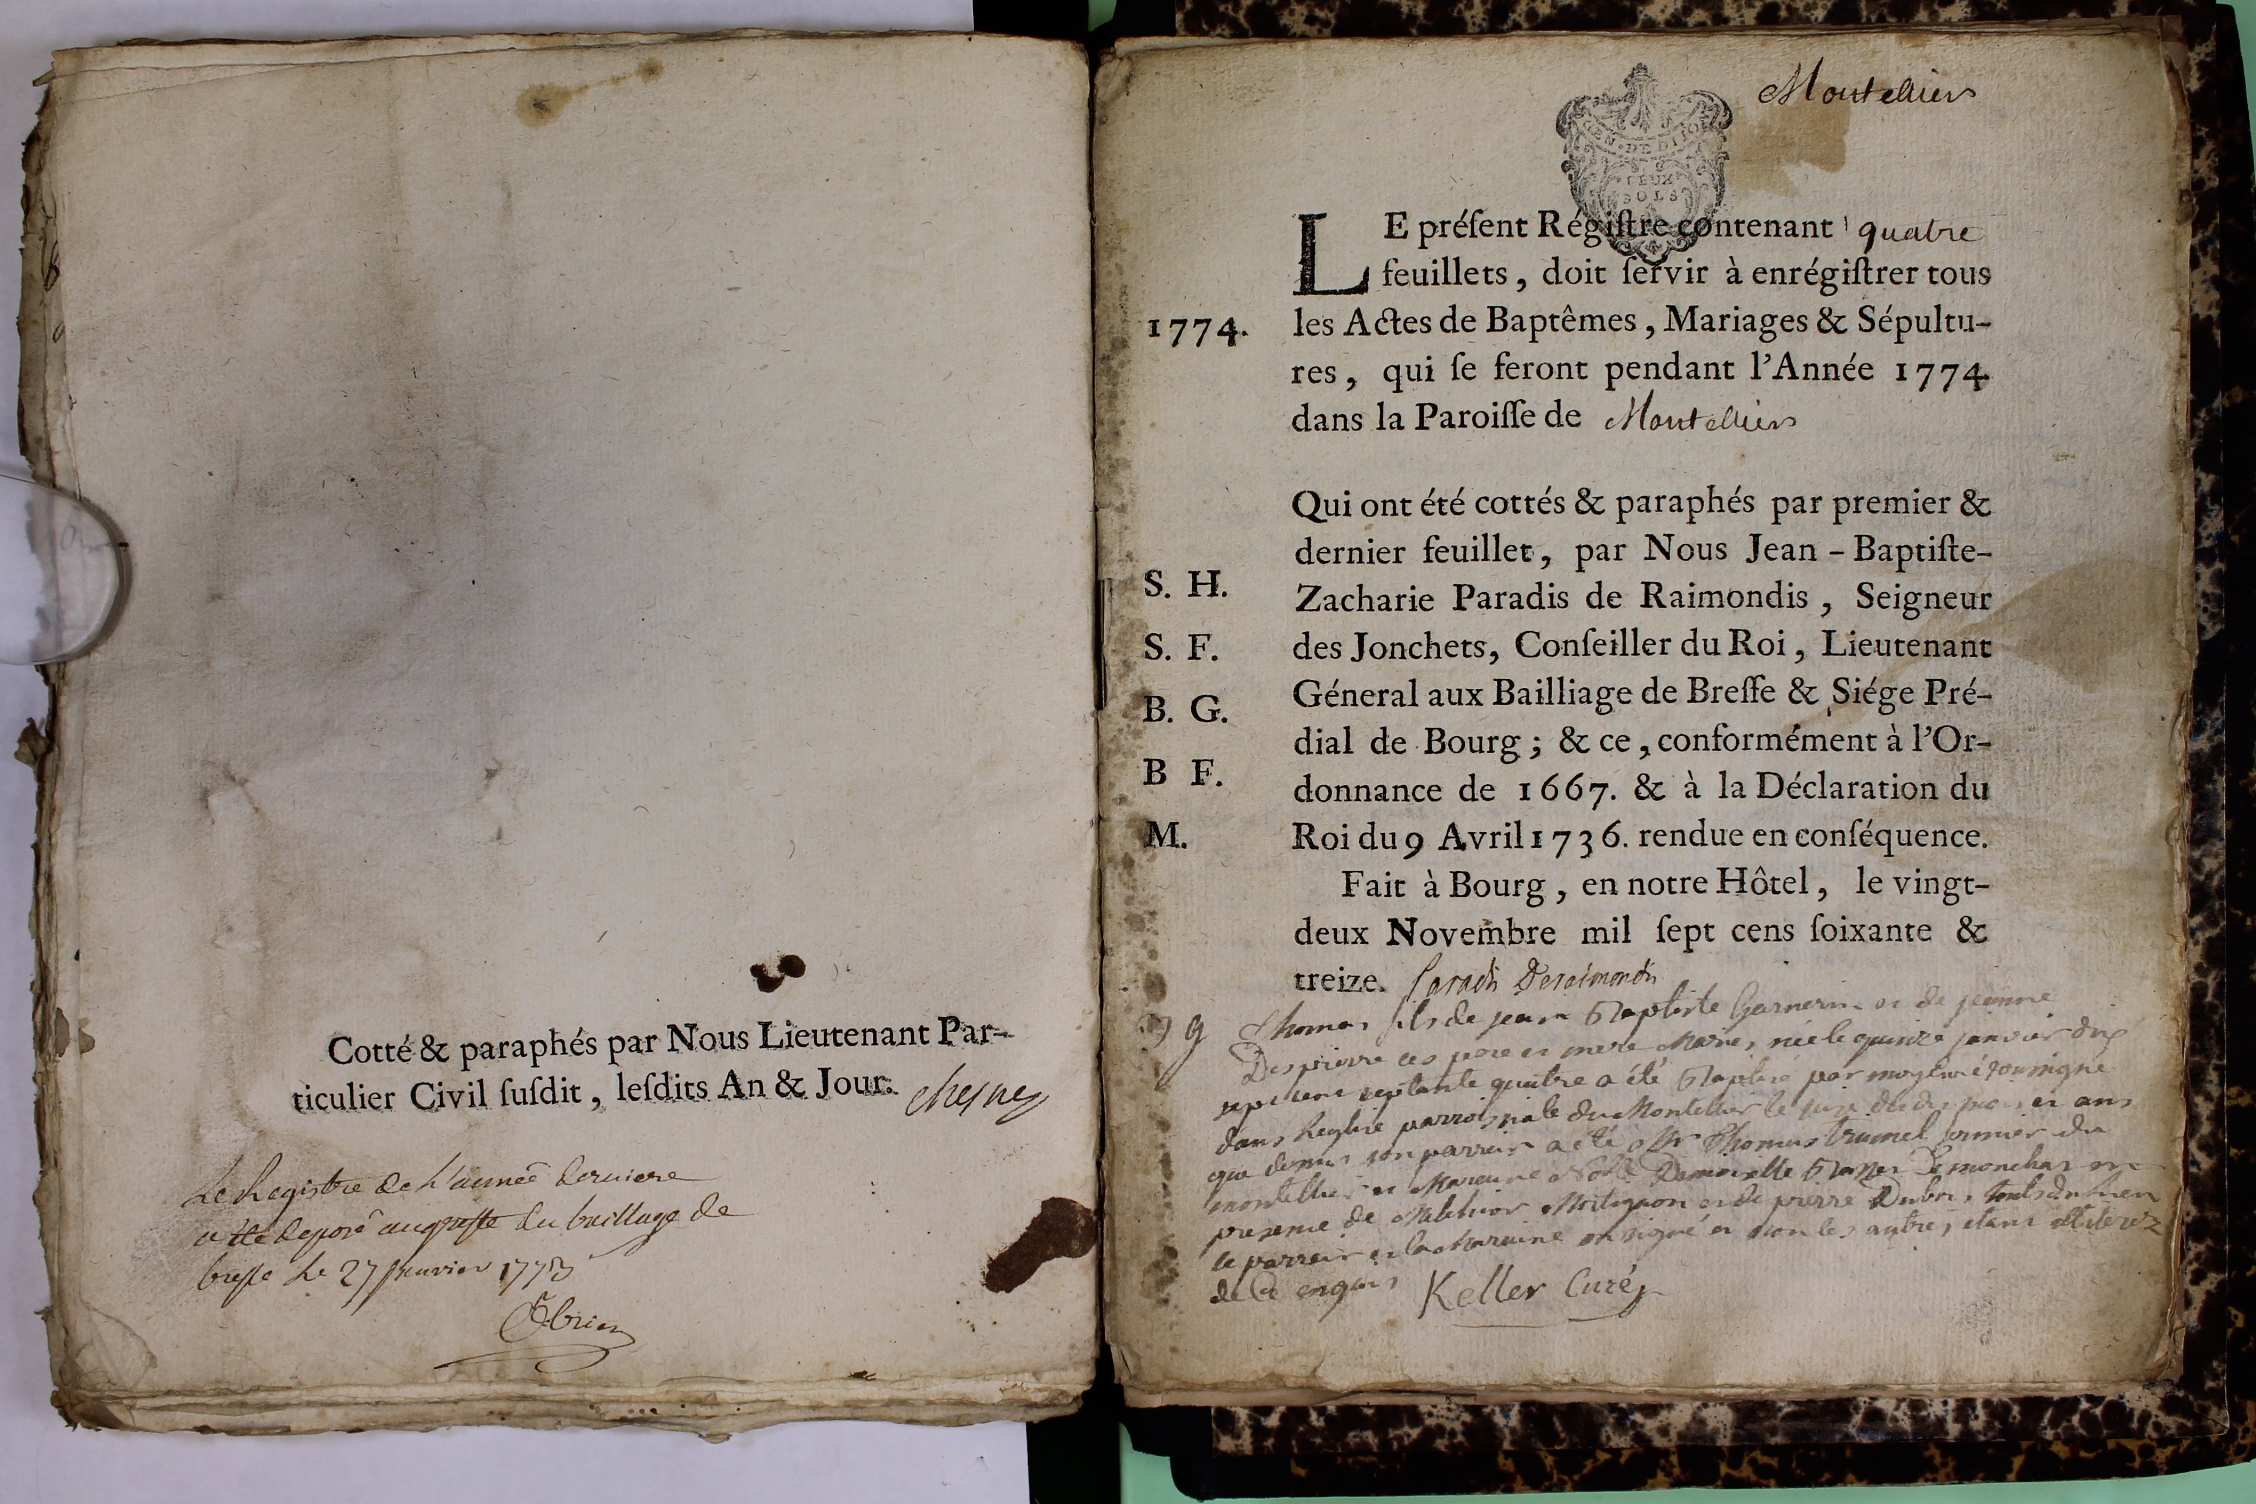 Cotté & paraphés par Nous Lieutenant Par-
ticulier Civil ſuſdit, leſdits An & Jour. chesney
Le Registre de L'année derniere
a été deposé au greffe du bailliage de
bresse le 27 Janvier 1773
Obrien
Montellier
GEN. DE DIJON
DEUX
SOLS
LE préſent Régiſtre contenant quatre
feuillets, doit ſervir à enrégiſtrer tous
1774. les Actes de Baptêmes, Mariages & Sépultu-
res, qui ſe feront pendant l'Année 1774
dans la Paroiſſe de Montellier
Qui ont été cottés & paraphés par premier &
dernier feuillet, par Nous Jean-Baptiſte-
S. H. Zacharie Paradis de Raimondis, Seigneur
S. F. des Jonchets, Conſeiller du Roi, Lieutenant
B. G. Géneral aux Bailliage de Breſſe & Siége Pré-
dial de Bourg; & ce, conformément à l'Or-
B F. donnance de 1667. & à la Déclaration du
M. Roi du 9 Avril 1736. rendue en conſéquence.
Fait à Bourg, en notre Hôtel, le vingt-
deux Novembre mil ſept cens ſoixante &
treize. Paradis Deraimondis
Thomas fils de jean Baptiste Garnerin et de jeanne
Despierre ses pere et mere Mariés, né le quinze janvier
sept cent septante quatre a été Baptisé par moy curé soussigné
dans l'eglise parroissiale du Montellier le jour mois et ans
que dessus son parrain a été Sr Thomas Brumel fermier du
montellier et Mareine Demoiselle en
presence de Melchior et de pierre Dubois
le parrain et la Maraine ont signé et non les autres, etans illiterez
de ce enquis Keller Curé